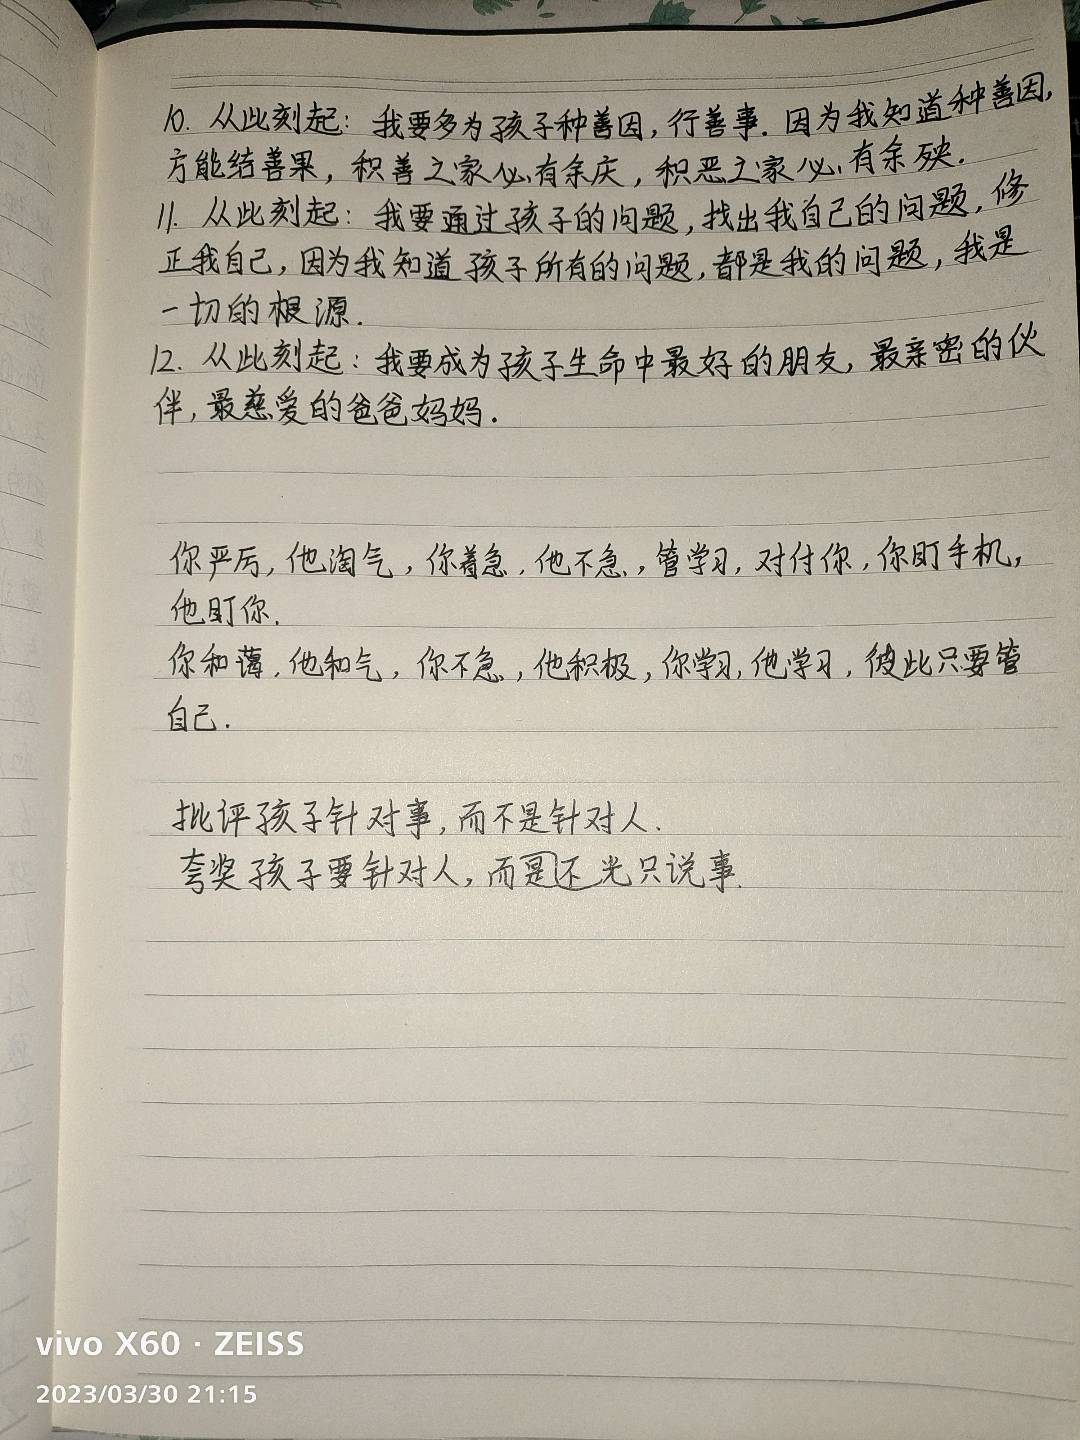 10. 从此刻起：我要多为孩子种善因，行善事. 因为我知道种善因，
方能结善果，积善之家必有余庆，积恶之家必有余殃.
11. 从此刻起：我要通过孩子的问题，找出我自己的问题，修
正我自己，因为我知道孩子所有的问题，都是我的问题，我是
一切的根源.
12. 从此刻起：我要成为孩子生命中最好的朋友，最亲密的伙
伴，最慈爱的爸爸妈妈.
你严厉，他淘气，你着急，他不急，管学习，对付你，你盯手机，
他盯你.
你和蔼，他和气，你不急，他积极，你学习，他学习，彼此只要管
自己.
批评孩子针对事，而不是针对人.
夸奖孩子要针对人，而是不光只说事.
vivo X60 · ZEISS
2023/03/30 21:15